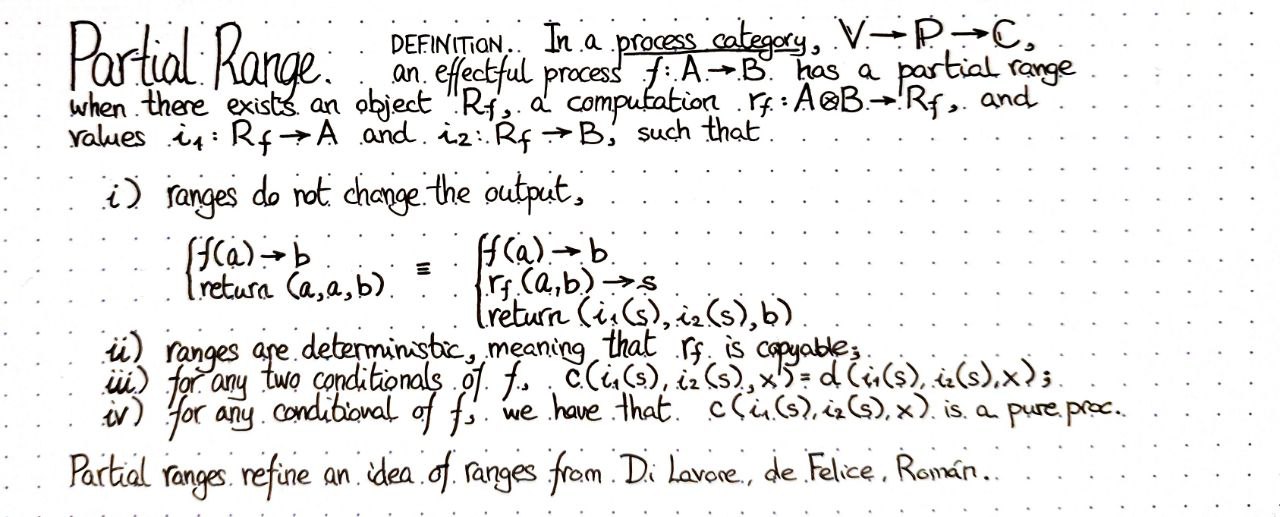 Partial Range. DEFINITION. In a process category, V→P→C,
an effectful process f: A→B has a partial range
when there exists an object Rf, a computation rf: A⊗B→Rf, and
values i1: Rf→A and i2: Rf→B, such that
i) ranges do not change the output,
f(a)→b
return (a,a,b)
≡
f(a)→b
rf(a,b)→s
return (i1(s), i2(s), b)
ii) ranges are deterministic, meaning that rf is copyable;
iii) for any two conditionals of f, c(i1(s), i2(s), x) = d(i1(s), i2(s), x);
iv) for any conditional of f, we have that c(i1(s), i2(s), x) is a pure proc.
Partial ranges refine an idea of ranges from Di Lavore, de Felice, Román.